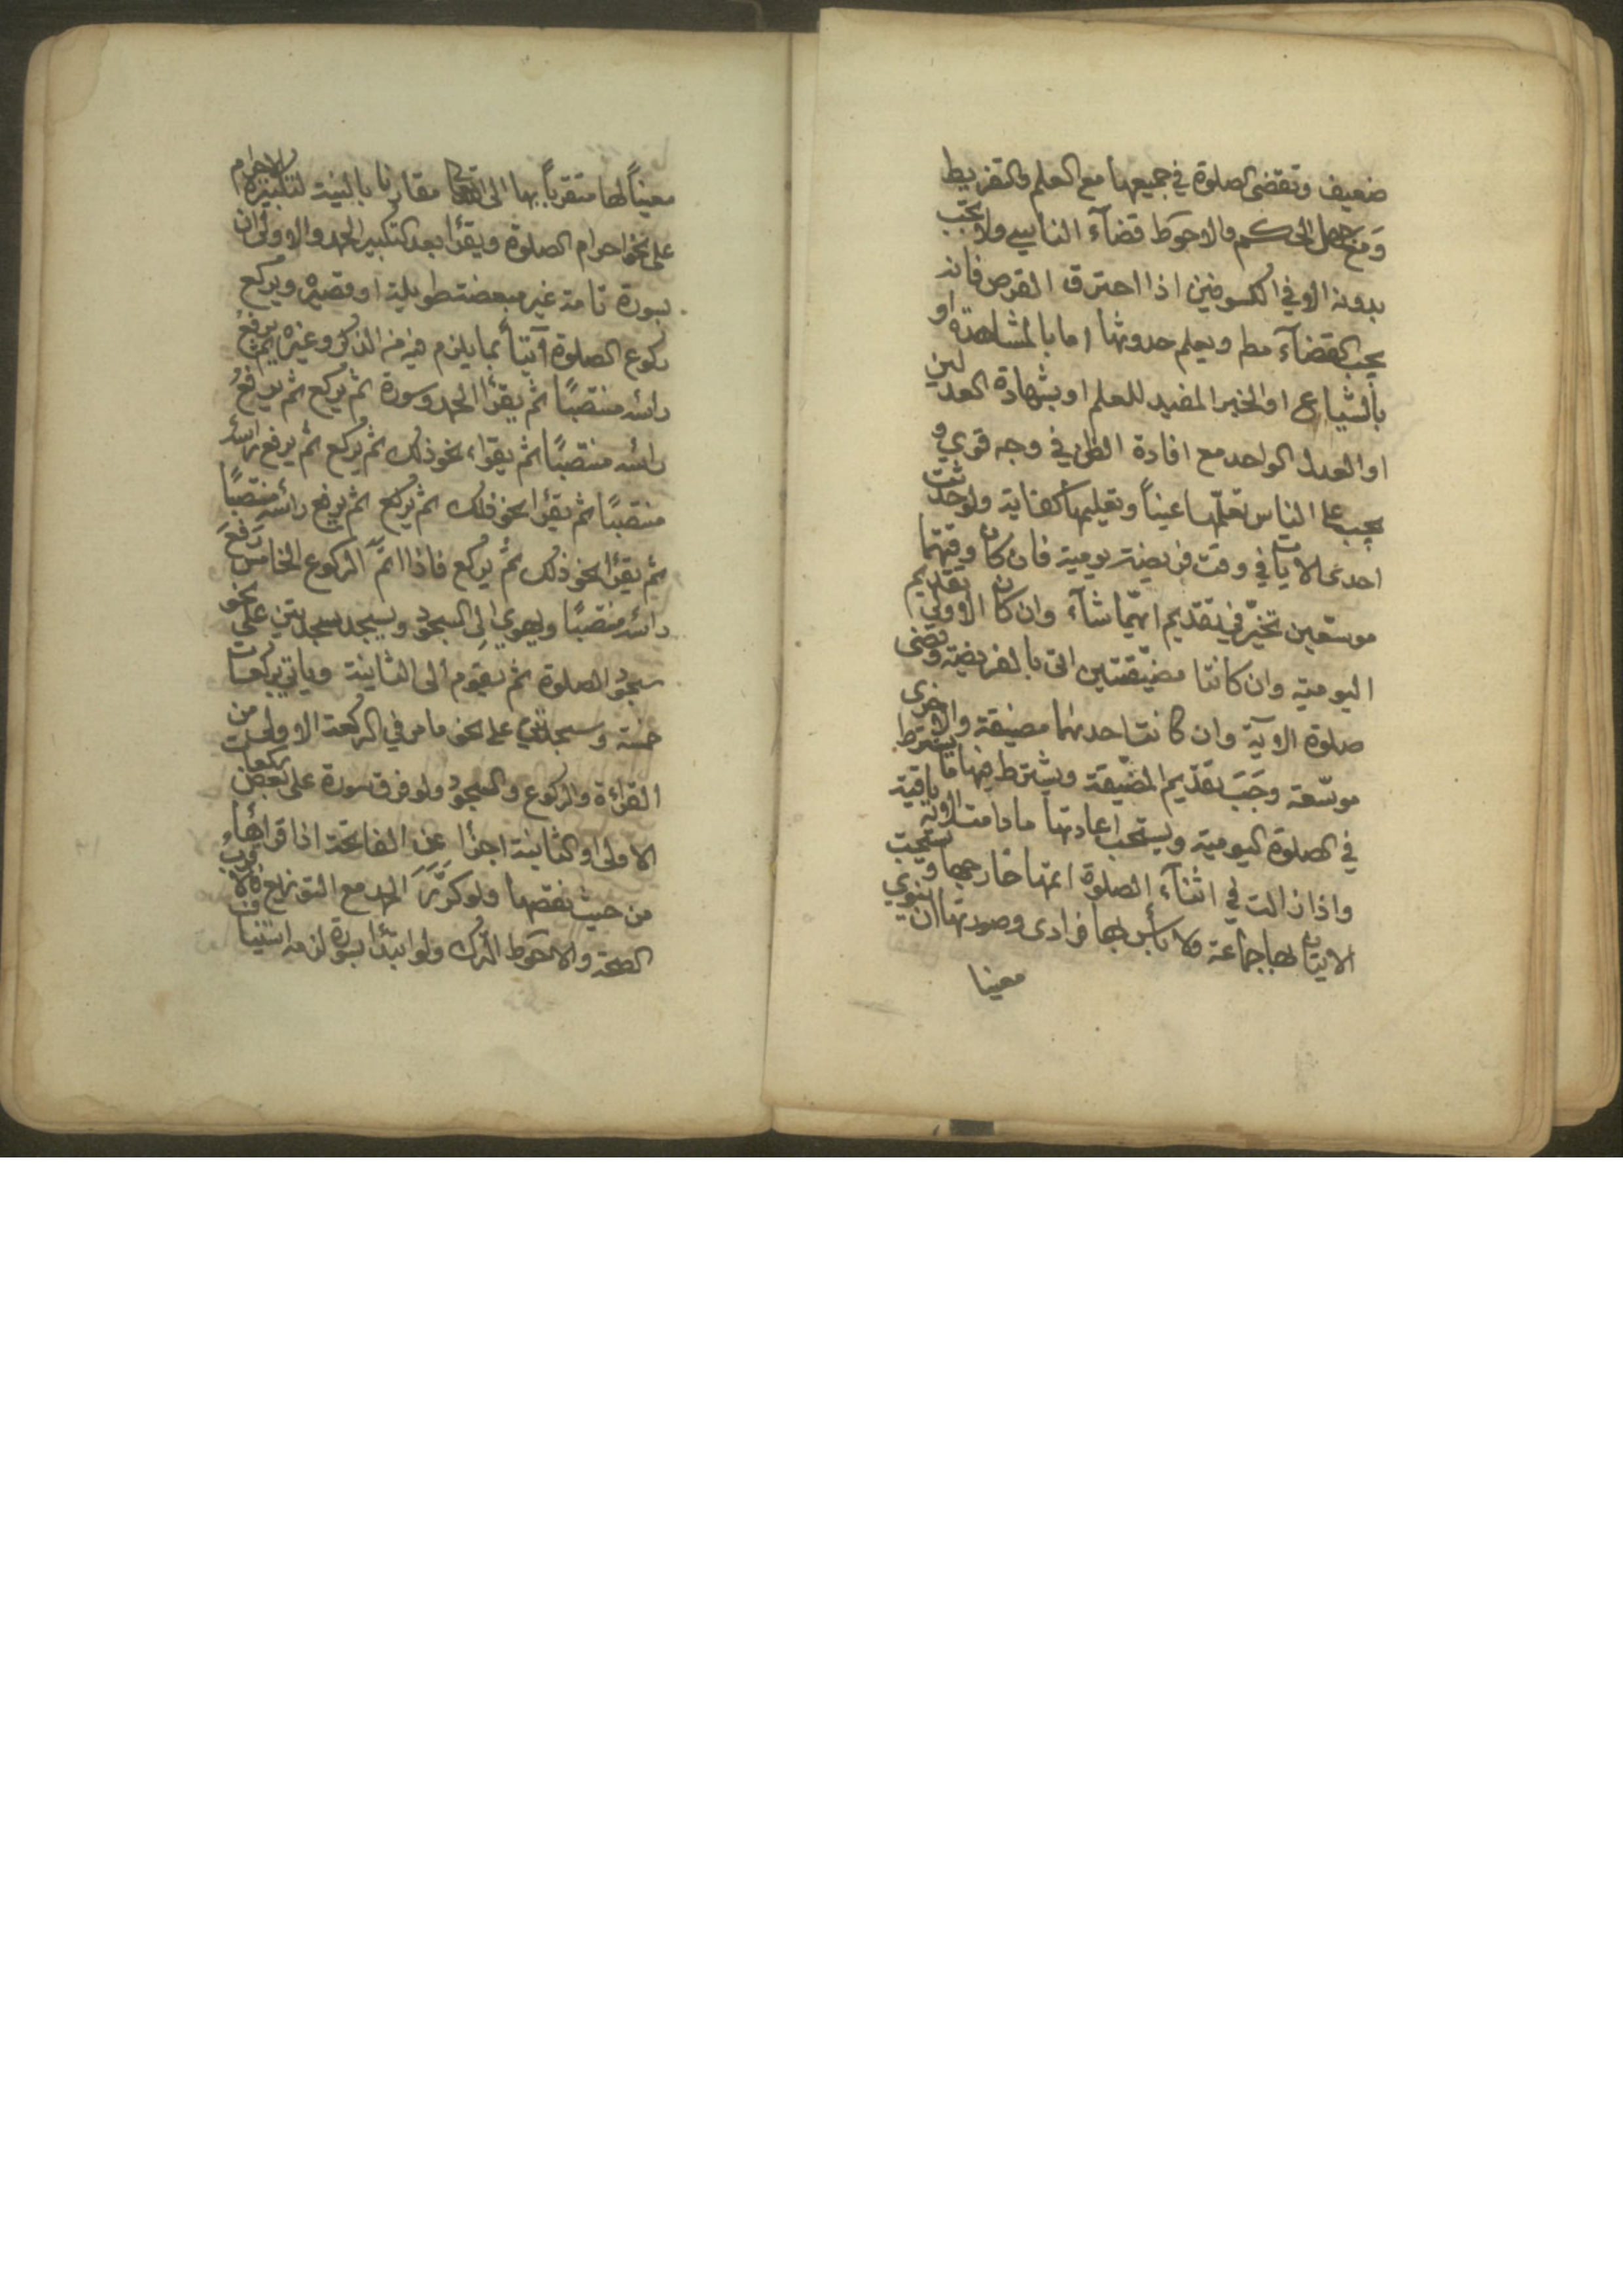 ضعيف وتقضى الصلوة في جميعها مع العلم والتفريط
ومع جهل الحكم والاحوط قضآء الناسي ولا يجب
بدونه الا في الكسوفين اذا احترق القرص فانه
يجب القضآء مطم ويعلم حدوثها اما بالمشاهدة او
بالشياع او الخبر المفيد للعلم او بشهادة العدلين
او العدل الواحد مع افادة الظن في وجه قوي و
يجب على الناس تعلّمها عيناً وتعليمها كفاية ولو حدثت
احدى الايات في وقت فريضة يومية فان كان وقتهما
موسّعين تخيّر في تقديم ايهّما شآء وان كان الاولى تقديم
اليومية وان كانتا مضيّقتين اتى بالفريضة وقضى
صلوة الاية وان كانت احدىهما مضيقة والاخرى
موسّعة وجَبَ تقديم المضيّقة ويشترط فيها ما يشترط
في الصلوة اليومية ويستحب اعادتها ما دامت الاية باقية
واذا زالت في اثنآء الصلوة اتمها خارجها ويستحب
الاتيان بها جماعة ولا بأس بها فرادى وصورتها ان ينوي
معينا
معيناً لها متقرباً بها الى الله تعالى مقارنا بالنية لتكبيرة الاحرام
على نحو احرام الصلوة ويقرأ بعد التكبير الحمد والاولى ان
بسورة تامة غير مبعضة طويلة او قصيرة ويركع
ركوع الصلوة آتياً بما يلزم فيه من الذكر وغيره ثم يرفع
رائسه منتصبًا ثم يقرأ الحمد وسورة ثم يركع ثم يرفع
رائسه منتصبًا ثم يقراء نحو ذلك ثم يركع ثم يرفع رائسه
منتصبًا ثم يقرأ نحو ذلك ثم يركع ثم يرفع رائسه منتصبًا
ثم يقرأ نحو ذلك ثم يركع فاذا اتمّ الركوع الخامس رفع
رائسه منتصبًا ويهوي الى السجود ويسجد سجدتين على نحو
سجود الصلوة ثم يقوم الى الثانية وياتي بركعات
خمسة وسجدتين على نحو ما مر في الركعة الاولى من
القرائة والركوع والسجود ولو فرق سورة على بعض ركعات
الاولى او الثانية اجزأ عن الفاتحة اذا قرأها و
من حيث نقصها ولو كرّر الحمد مع التوزيع فالاقرب
الصحة والاحوط الترك ولو ابتدأ بسورة لزمه استيناف